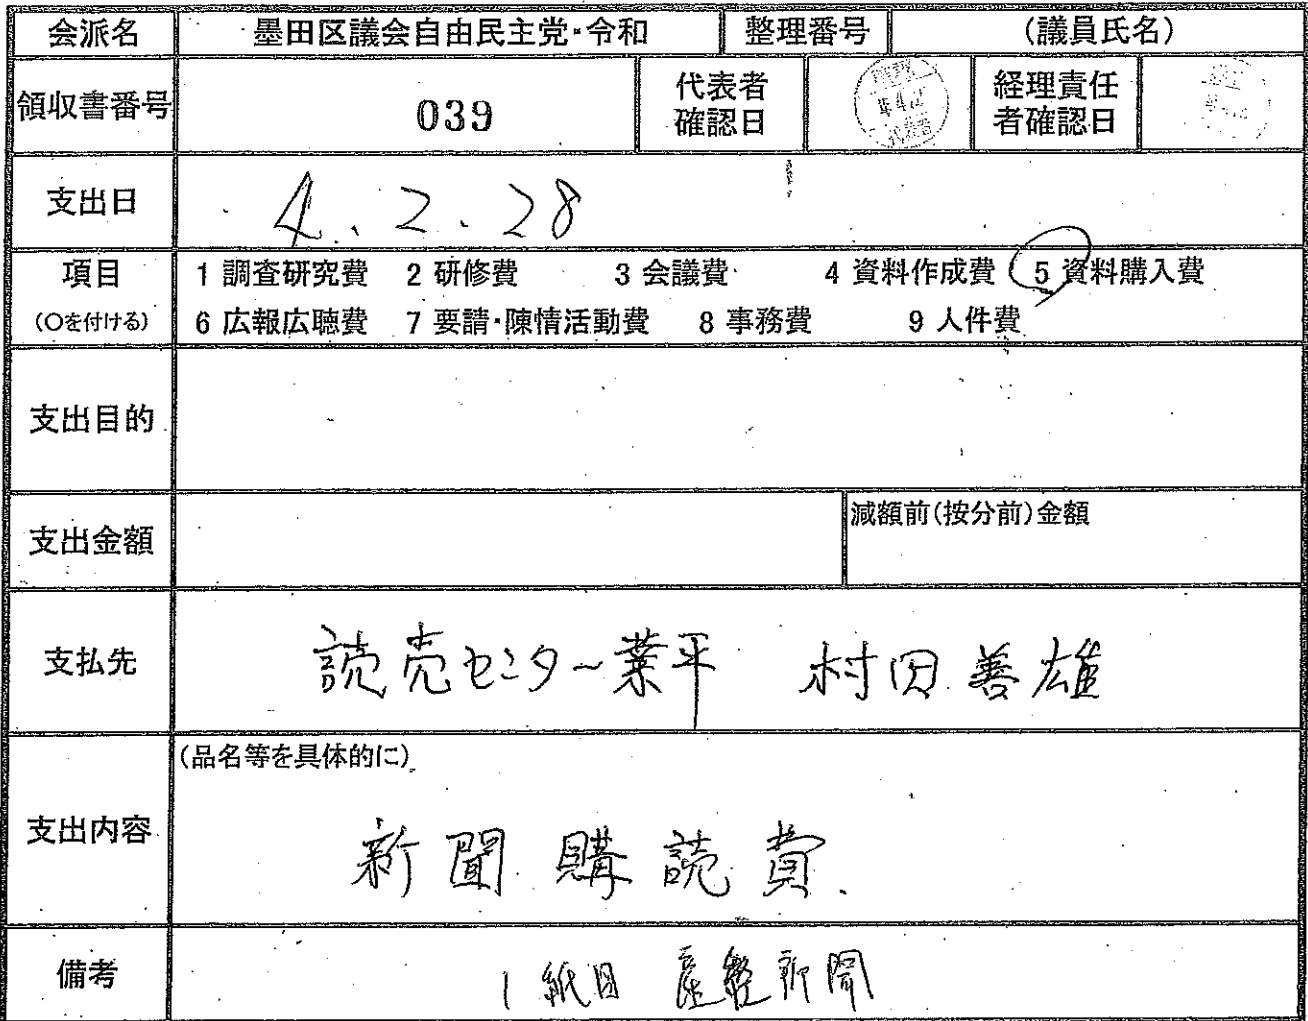 会派名 墨田区議会自由民主党・令和 整理番号 (議員氏名)
領収書番号 039 代表者確認日 経理責任者確認日
支出日 4.2.28
項目 1 調査研究費 2 研修費 3 会議費 4 資料作成費 5 資料購入費
(〇を付ける) 6 広報広聴費 7 要請・陳情活動費 8 事務費 9 人件費
支出目的
支出金額 減額前(按分前)金額
支払先 読売センター業平 村田善雄
(品名等を具体的に)
支出内容 新聞購読費.
備考 1紙目 産経新聞